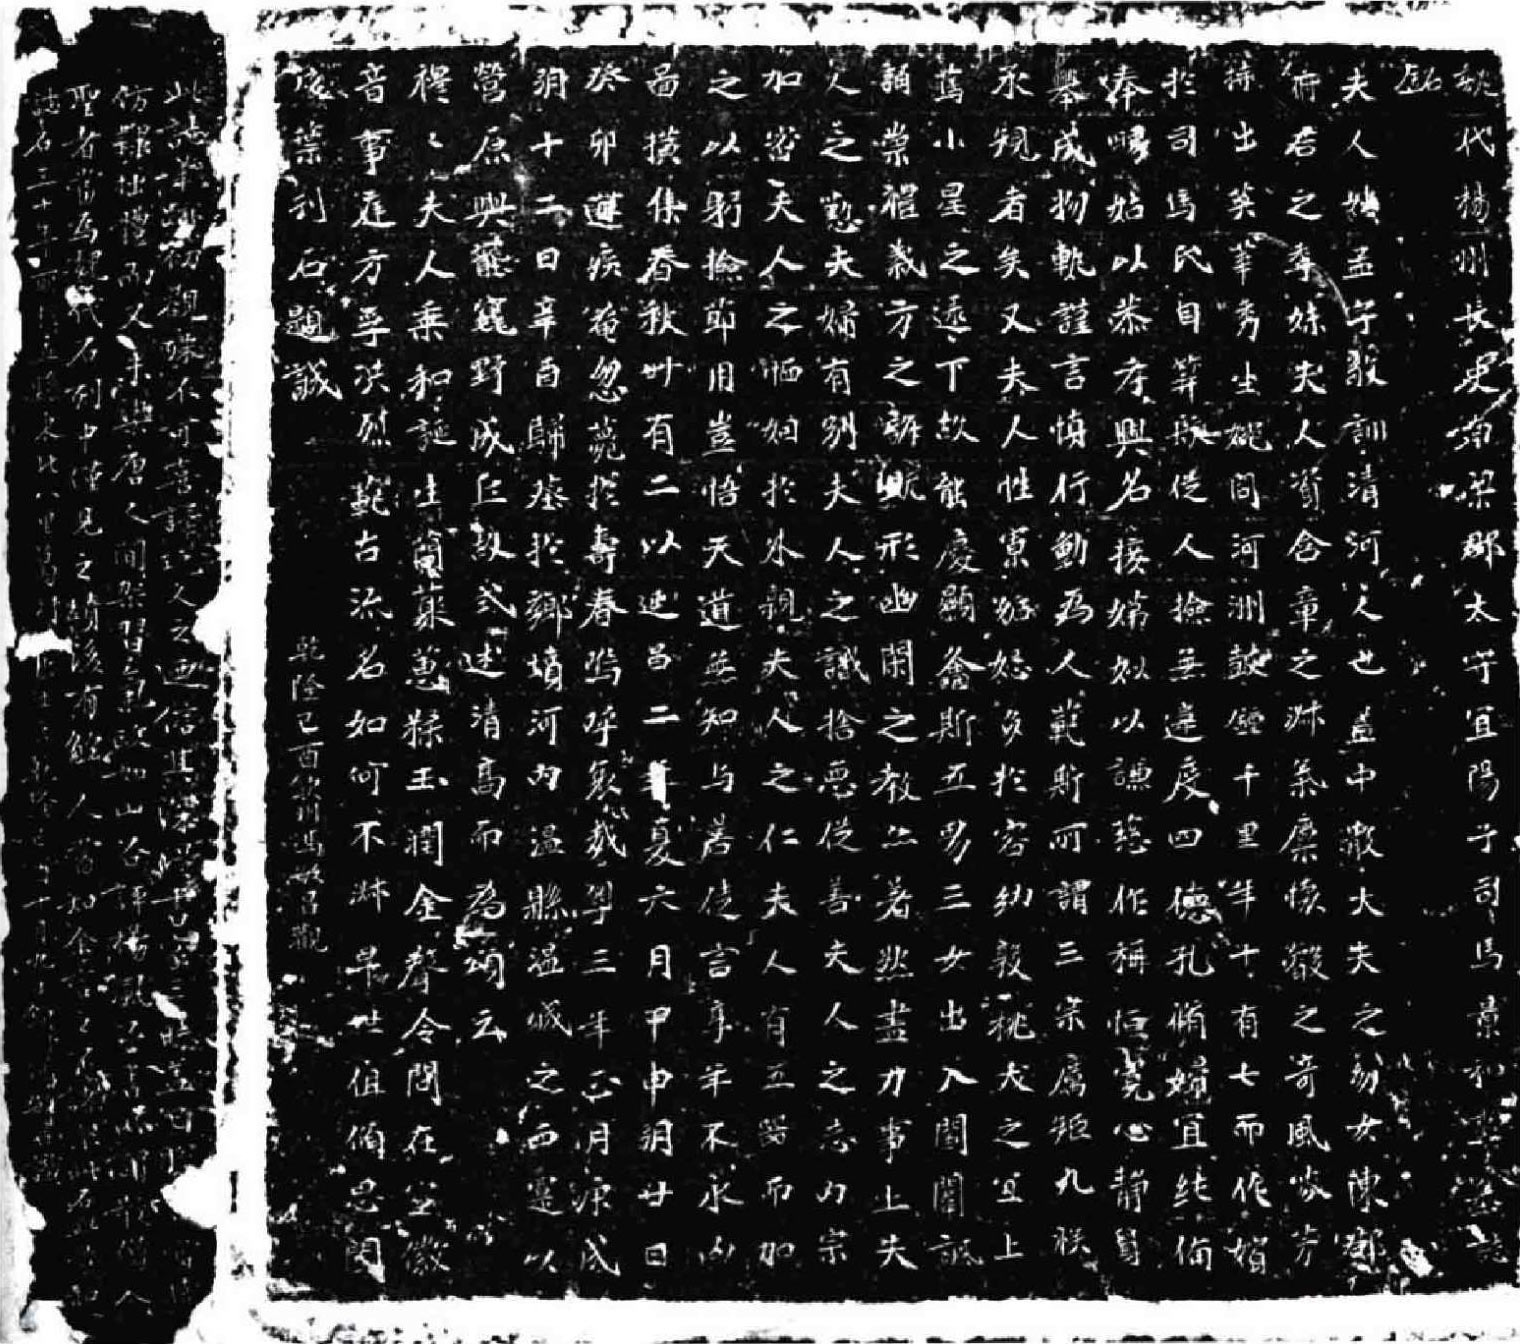 魏代楊州長史南梁郡太守宜陽子司馬景和妻墓誌
銘
夫人姓孟字敬訓清河人也蓋中散大夫之幼女陳郡
府君之季妹夫人資含章之淑氣稟懷叡之奇風芬芳
特出英華秀生婉問河洲鼓鍾千里年十有七而作嬪
於司馬氏自笄髮從人撿無違度四德孔脩婦宜純備
奉舅姑以恭孝興名接娣姒以謙慈作稱恒寬心靜質
舉成物軌謹言慎行動為人範斯所謂三宗厲矩九族
承規者矣又夫人性寡妒忌多於容納敦桃夭之宜上
篤小星之逮下故能慶顯螽斯五男三女出入閨闈諷
誦崇禮義方之訓既形幽閑之教亦著然盡力事上夫
人之懃夫婦有別夫人之識捨惡從善夫人之志內宗
加密夫人之恤姻於外親夫人之仁夫人有五器而加
之以躬撿節用豈悟天道無知与善徒言享年不永凶
啚橫集春秋卌有二以延昌二年夏六月甲申朔廿日
癸卯遘疾奄忽薨於壽春嗚呼哀哉粵三年正月庚戌
朔十二日辛酉歸葬於鄉墳河內溫縣溫城之西靈以
營原興壟窀野成丘敢式述清高而為頌云
穆〻夫人乘和誕生蘭蕐蕙糅玉潤金聲令問在室徽
音事庭方孚洪烈範古流名如何不淑早世徂傾思聞
後葉刊石題誠
乾隆己酉欽州馮敏昌觀
此誌初觀殊不可喜諦玩久之
仿雖拙澧而人未與唐人間架習氣
聖者嘗為魏代石刻中僅見之蹟後有解人當知余言之